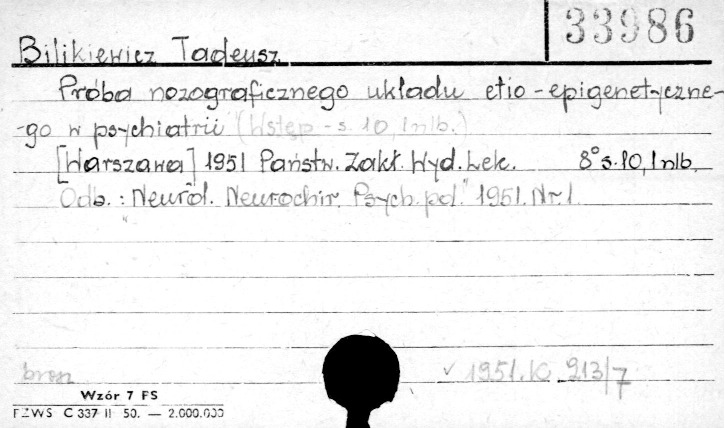 33986
Bilikiewicz Tadeusz
Próba nozograficznego układu etio-epigenetyczne-
-go w psychiatrii (Wstęp - s. 10, 1 nlb.)
[Warszawa] 1951 Państw. Zakł. Wyd. Lek. 8° s. 10, 1 nlb.
Odb.: "Neurol. Neurochir. Psych. pol." 1951. Nr 1.
bron
√ 1951.K. 913/7
Wzór 7 FS
PZWS C 337 II 50. — 2.000.000